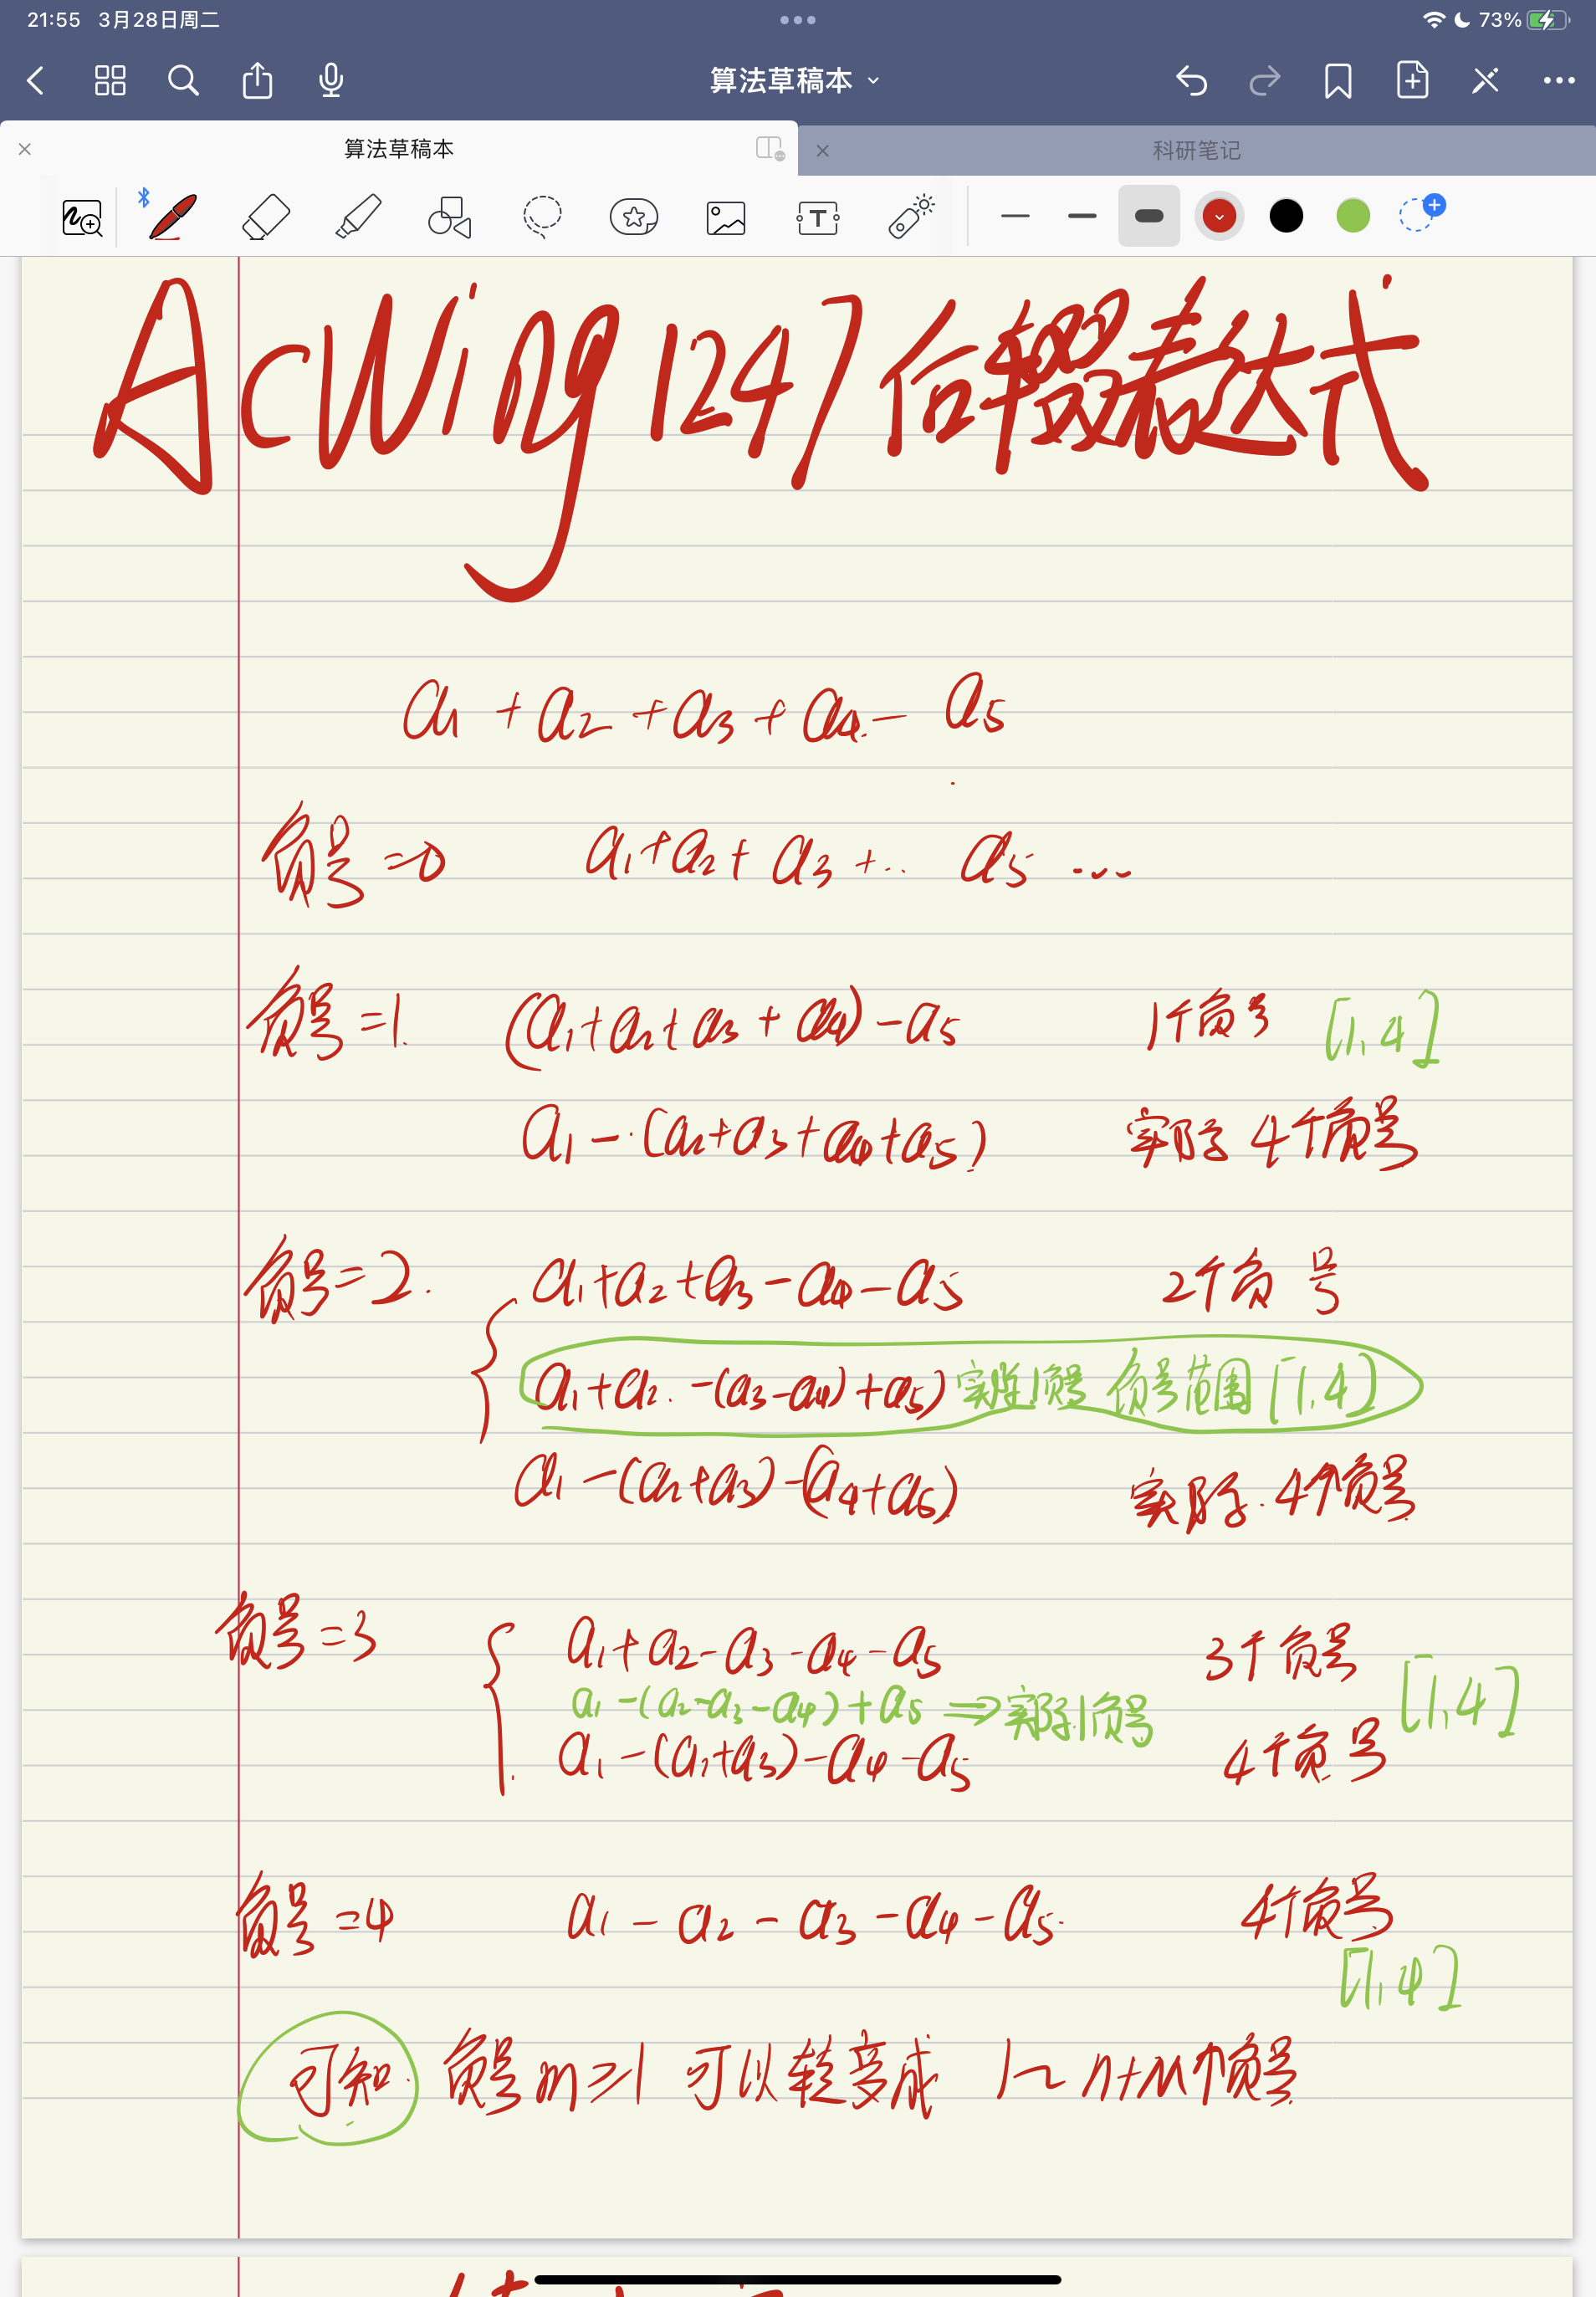 21:55 3月28日周二
73%
算法草稿本
算法草稿本
科研笔记
T
AcWing 1247 后缀表达式
a1 + a2 + a3 + a4 - a5
负号=0 a1+a2+a3+.. a5 ...
负号=1. (a1+a2+a3+a4)-a5 1个负号 [1,4]
a1-(a2+a3+a4+a5) 实际4个负号
负号=2. a1+a2+a3-a4-a5 2个负号
a1+a2.-(a3-a4)+a5) 实际1负号 负号范围[1,4]
a1-(a2+a3)-(a4+a5) 实际.4个负号
负号=3 a1+a2-a3-a4-a5 3个负号
a1-(a2-a3-a4)+a5 ⇒实际1负号 [1,4]
a1-(a2+a3)-a4-a5 4个负号
负号=4 a1-a2-a3-a4-a5. 4个负号
[1,4]
可知. 负号m≥1 可以转变成 1~n+m个负号